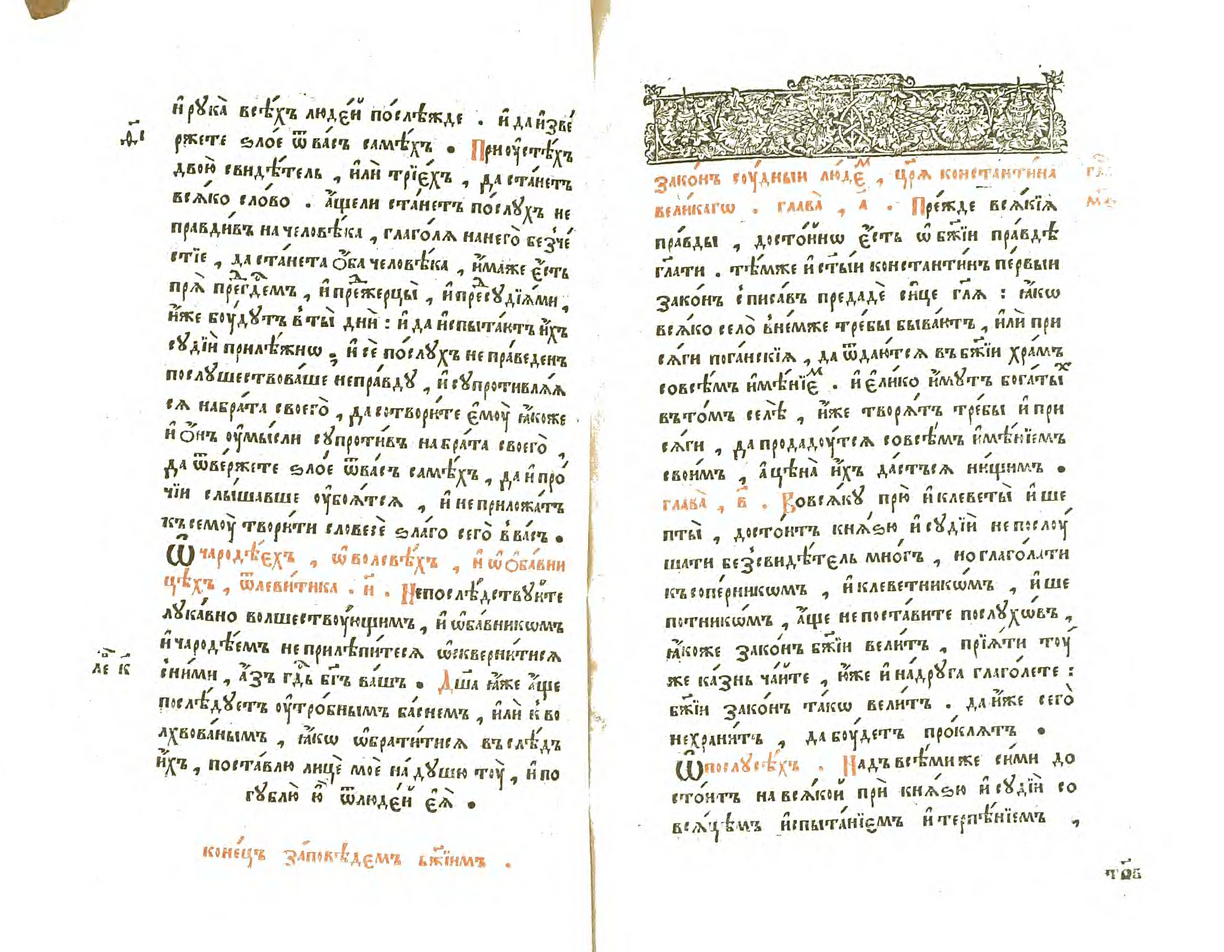 и҆ рꙋка̀ всѣ́хъ люде́й послѣ́жде . и҆ да и҆зве́
рже́те ѕло́е ѿ ва́съ самѣ́хъ . При оу҆стѣ́хъ
двою̀ свидѣ́тель , и҆лѝ трїе́хъ , да ста́нетъ
всѧ́ко сло́во . а҆́щели ста́нетъ по́слꙋхъ не
пра́вдивъ на человѣ́ка , глаго́лѧ на него̀ безче́
стїе , да ста́нета о҆́ба человѣ́ка , и҆́маже є҆́сть
прѧ̀ пре́гдⷭ҇емъ , и҆ пре́жерцы̀ , и҆ пре́сꙋдїѧми ,
и҆́же бо́удꙋтъ в ты̀ дни̑ : и҆ да и҆спыта́ютъ и҆́хъ
сꙋдїи̑ прилѣ́жнѡ , и҆ сѐ по́слꙋхъ не пра́веденъ
послꙋшествова́ше непра́вдꙋ , и҆ сꙋпроти́влѧѧ
сѧ на бра́та своего̀ , да сотвори́те є҆моу̀ ꙗ҆́коже
и҆ о҆́нъ оу҆мы́сли сꙋпроти́въ на бра́та своего̀ ,
да ѿве́ржете ѕло́е ѿ ва́съ самѣ́хъ , да и҆ про́
чїи слы́шавше оу҆боѧ́тсѧ , и҆ не приложа́тъ
к семоу̀ твори́ти словесѐ ѕла́го сего̀ в ва́съ .
Ѡ҆ чародѣ́ехъ , ѡ҆ волсвѣ́хъ , и҆ ѡ҆ о҆ба́вни
цѣхъ , ѿ леви́тика . и҃ . Непослѣ́дствꙋите
лꙋка́вно волшествоу́ющимъ , и҆ ѡ҆ба́вникѡмъ
и҆ чародѣ́емъ не прилѣпи́тесѧ ѡ҆скверни́тисѧ
с ни́ми , а҆́зъ гдⷭ҇ь бг҃ъ ва́шъ . Дш҃а ꙗ҆́же а҆́ще
послѣ́дꙋетъ оу҆тро́бнымъ ба́снемъ , и҆лѝ к во
лхвова́нымъ , ꙗ҆́кѡ ѡ҆брати́тисѧ въ слѣ́дъ
и҆́хъ , поста́влю лицѐ моѐ на́ дꙋшю тоу̀ , и҆ по
гꙋблю̀ ю҆̀ ѿ люде́й є҆ѧ̀ .
коне́цъ за́повѣдемъ бж҃їимъ .
ле к҃
зако́нъ соу́дныи люде́м , цр҃ѧ констѧнти́на
вели́кагѡ . глава̀ , а҃ . Пре́жде всѧ́кїѧ
пра́вды , досто́йнѡ є҆́сть ѡ҆ бж҃їи пра́вдѣ
гл҃ати . тѣ́мже и҆ ст҃ы́и констѧнти́нъ пе́рвыи
зако́нъ списа́въ предадѐ си́це гл҃ѧ : ꙗ҆́кѡ
всѧ́ко село̀ в не́мже тре́бы быва́ютъ , и҆лѝ при
сѧ́ги пога́нскїѧ , да ѿдаю́тсѧ въ бж҃їи хра́мъ
совсѣ́мъ и҆мѣ́нїем . и҆ є҆ли́ко и҆́мꙋтъ бога́тых
въ то́мъ селѣ̀ , и҆́же творѧ́тъ тре́бы и҆ при
сѧ́ги , да продадоу́тсѧ совсѣ́мъ и҆мѣ́нїемъ
свои́мъ , а҆ цѣна̀ и҆́хъ да́стьсѧ ни́щимъ .
глава̀ , в҃ . Во всѧ́кꙋ прю̀ и҆ клеветы̀ и҆ ше
пты̀ , досто́итъ кнѧ́ѕю и҆ сꙋдїѝ не послоу́
шати без свидѣ́тель мно́гъ , но глаго́лати
къ сопе́рникѡмъ , и҆ клеветникѡ́мъ , и҆ ше
потникѡ́мъ , а҆́ще не поста́вите послꙋхѡ́въ ,
ꙗ҆́коже зако́нъ бж҃їи вели́тъ , прїѧ́ти тоу́
же ка́знь ча́йте , ю҆́же и҆ на дрꙋ́га глаго́лете :
бж҃їи зако́нъ та́кѡ вели́тъ . да и҆́же сего̀
не храни́тъ , да боу́детъ про́клѧтъ .
Ѡ҆ послꙋсѣ́хъ . Надъ всѣ́ми же си́ми до
сто́итъ на всѧ́кой прѝ кнѧ́ѕю и҆ сꙋдїѝ со
всѧ́цѣмъ и҆спыта́нїемъ и҆ терпѣ́нїемъ ,